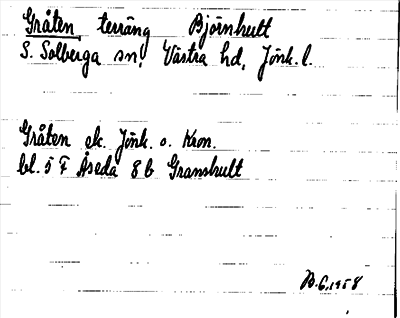 Gråten, terräng Björnhult
S. Solberga sn, Västra hd, Jönk. l.
Gråten ek. Jönk. o. Kron.
bl. 5 F Åseda 8 b Granshult
B.G. 1958